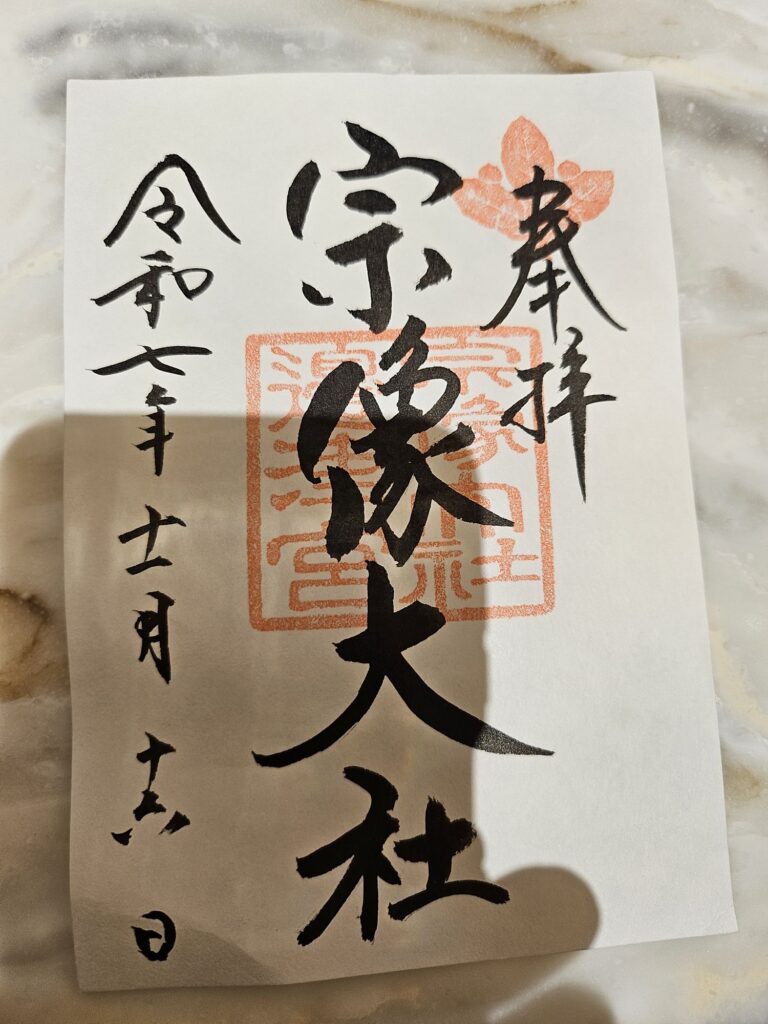 奉拝
宗像大社
宗像大社
邊津宮
令和七年十一月十六日